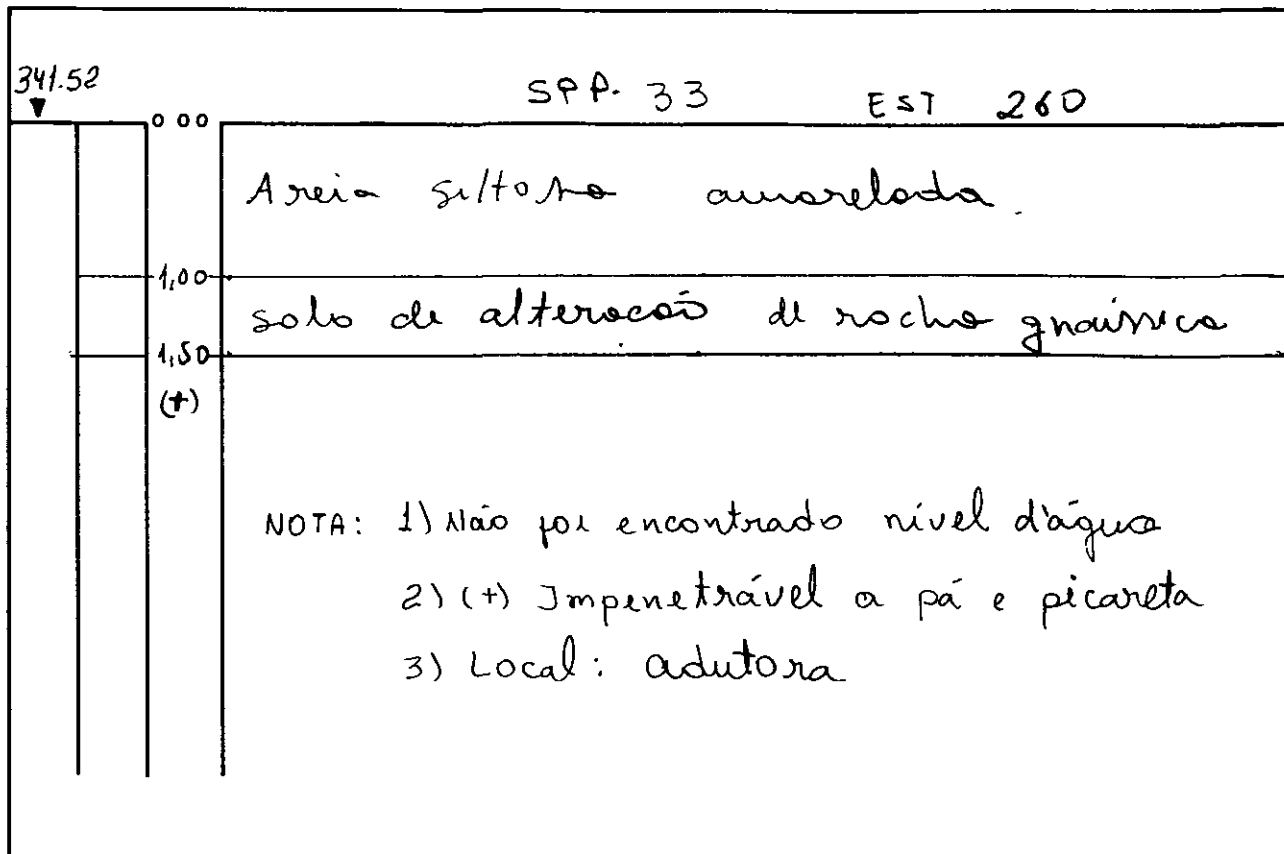 341.52
SPP. 33 EST 260
0 00
Areia siltosa amarelada.
1,00
solo de alteracaõ de rocha gnaissica
1,50
(+)
NOTA: 1) Não foi encontrado nível d'água
2) (+) Impenetrável a pá e picareta
3) Local: adutora